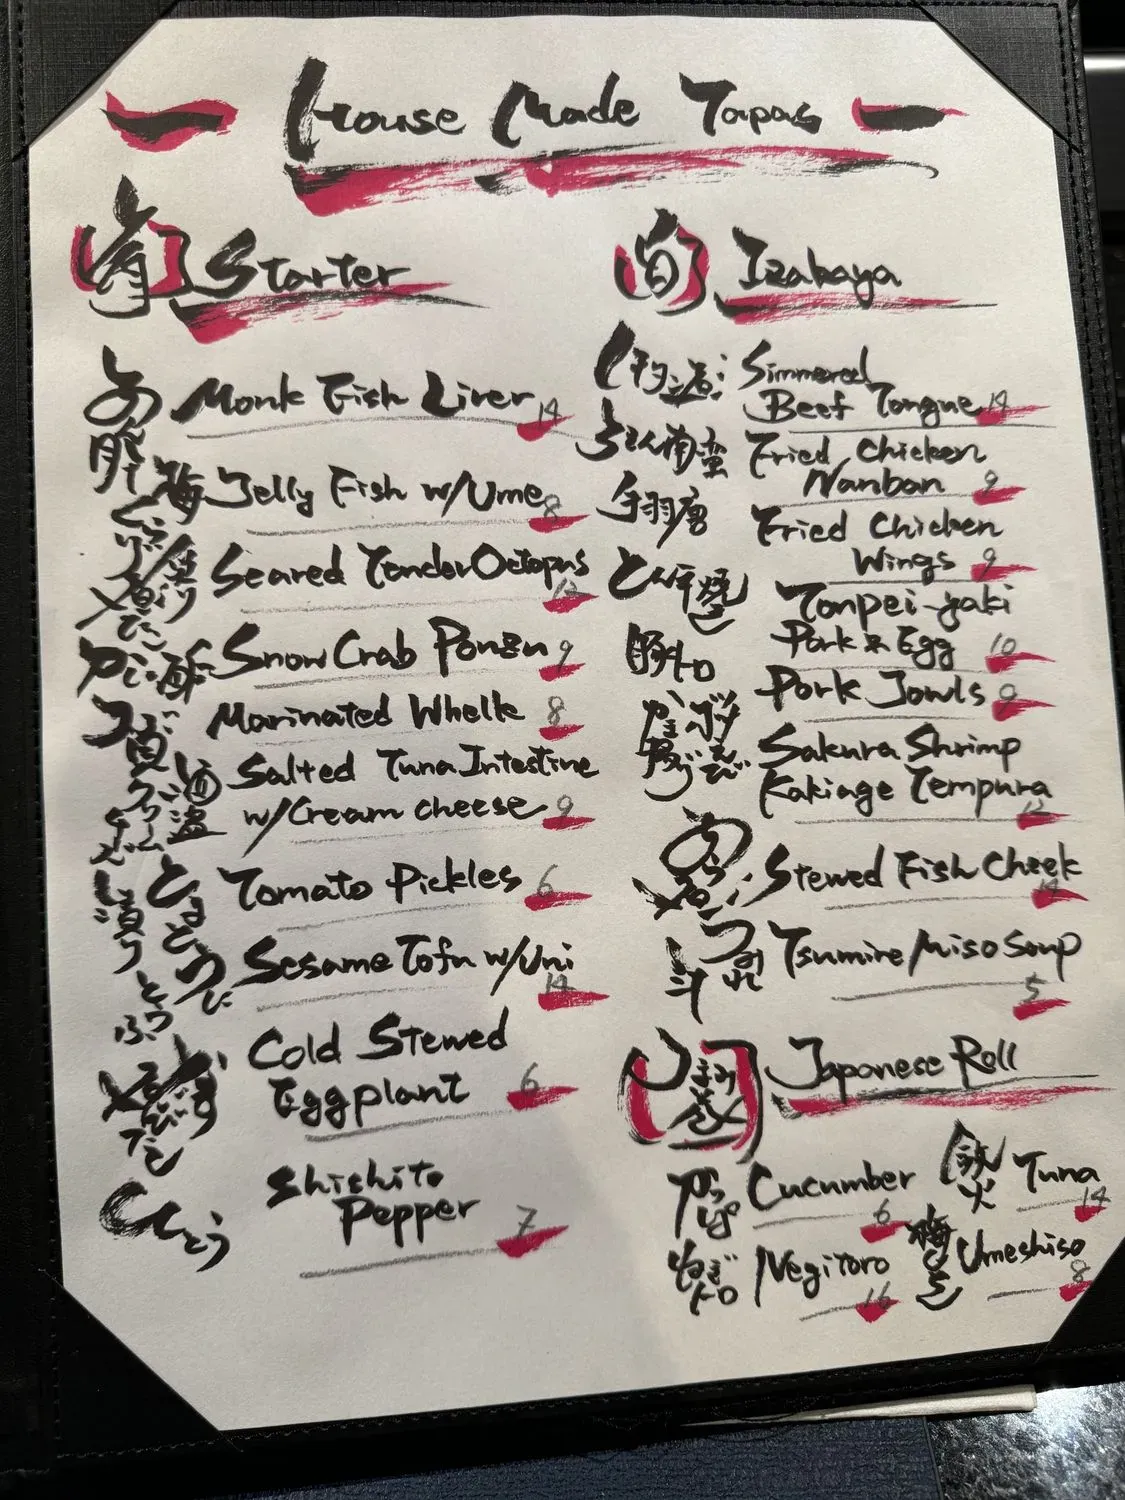 House Made Tapas
肴 Starter
あん肝 Monk Fish Liver 14
梅くらげ Jelly Fish w/Ume 8
Seared Tender Octopus 12
かに酢 Snow Crab Ponzu 9
つぶ貝 Marinated Whelk 8
酒盗 Salted Tuna Intestine
w/Cream cheese 9
とまとづけ Tomato Pickles 6
とうふ Sesame Tofu w/Uni 14
Cold Stewed
Eggplant 6
ししとう Shishito
Pepper 7
旬 Izakaya
Simmered
Beef Tongue 14
南蛮 Fried Chicken
Nanban 9
手羽唐 Fried Chicken
Wings 9
とん平焼き Tonpei-yaki
Pork & Egg 10
豚トロ Pork Jowls 9
Sakura Shrimp
Kakiage Tempura 12
Stewed Fish Cheek 14
つみれ汁 Tsumire Miso Soup 5
巻 Japanese Roll
かっぱ Cucumber 6
鉄火 Tuna 14
ねぎトロ Negitoro 16
梅しそ Umeshiso 8